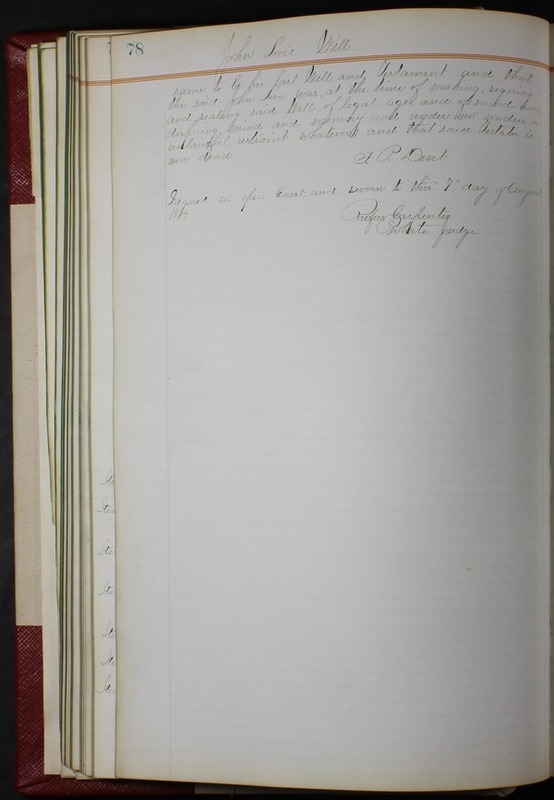 78
John Love Will
same to by his last Will and Testament and that
the said John was, at the time of making, signing
and sealing said Will of legal age and of sound and
disposing mind and memory and under no undue or
unlawful restraint whatever and that said Testator is
now dead
F. P. Dent.
Signed in open Court, and sworn to this 7" day of August
18
Rufus Carpenter
Probate Judge